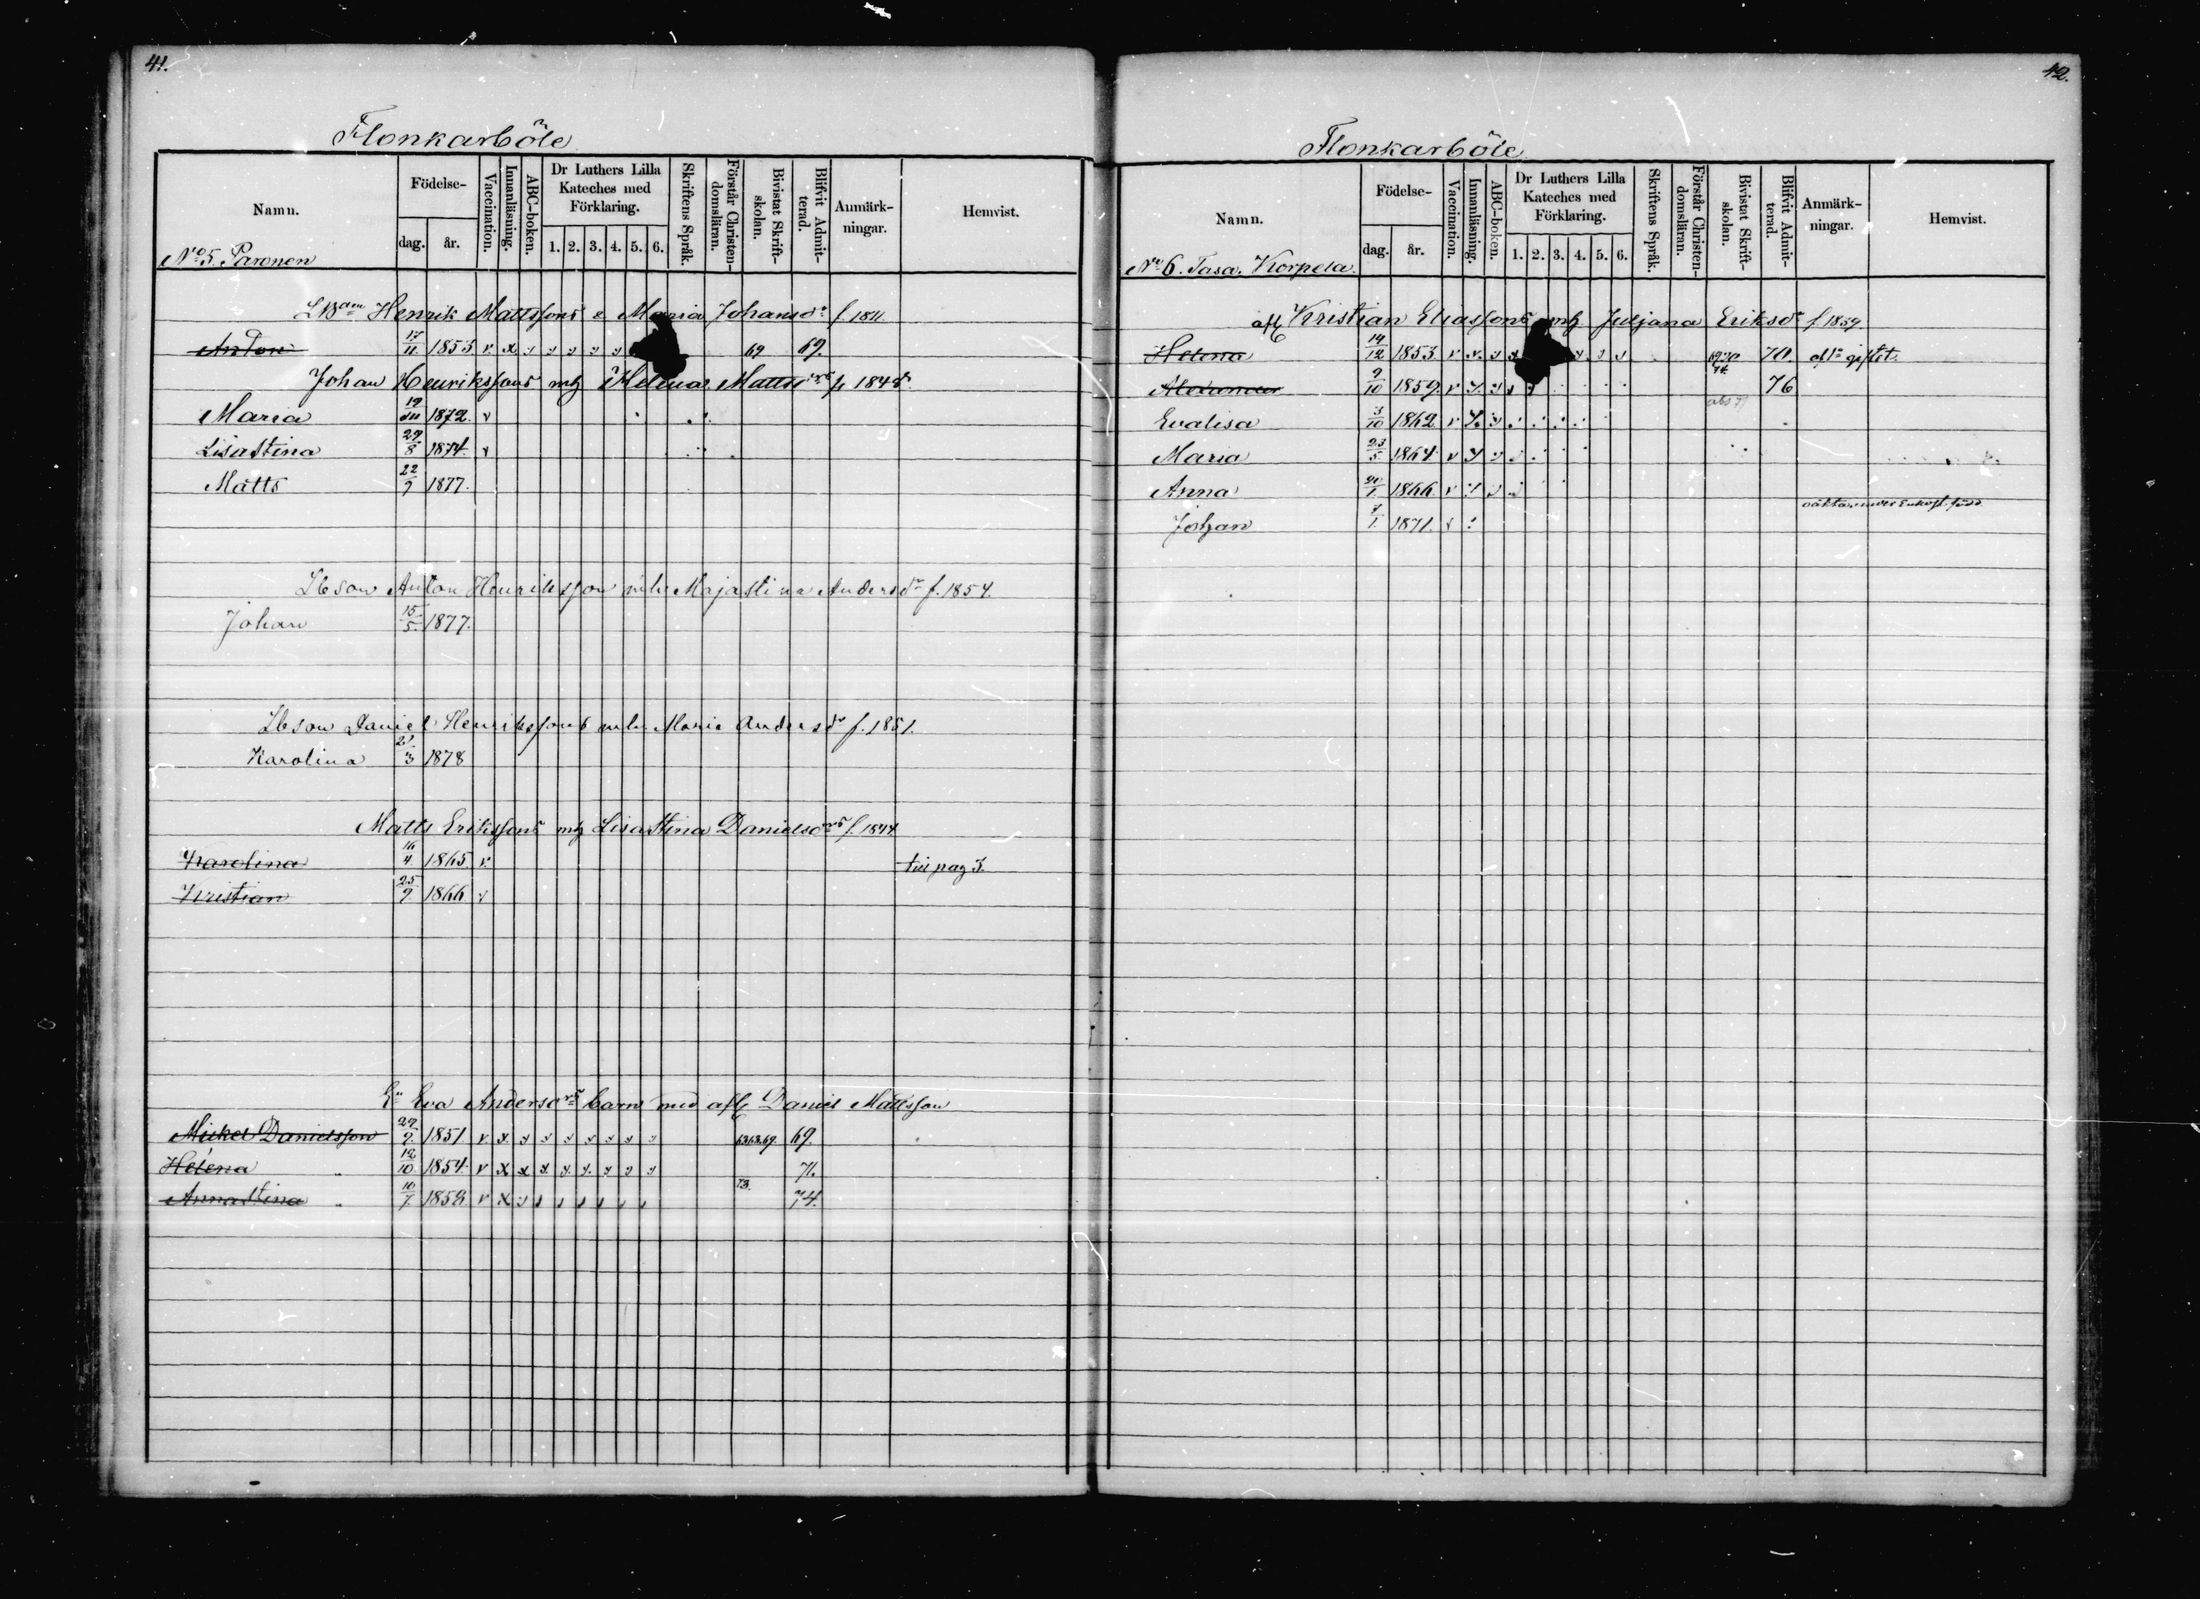 41.
Flonkarböle
Namn.
Födelse-
dag.
år.
Vaccination.
Innanläsning.
ABC-boken.
Dr Luthers Lilla Kateches med Förklaring.
1. 2. 3. 4. 5. 6.
Skriftens Språk.
Förstår Christendomsläran.
Bivistat Skriftskolan.
Blifvit Admitterad.
Anmärkningar.
Hemvist.
No 5. Paronen
Henrik Mattssons e. Maria Johansdr f. 1811.
Anton 17/11 1855 v x 69 69.
Johan Henrikssons mh Helena Mattsdrs f. 1848
Maria 1872. v
Lisa Stina 29/8 1874. v
Matts 22/9 1877.
Lbson Anton Henriksson mh. Maja Stina Andersdr f. 1854.
Johan 15/5. 1877.
Lbson Daniel Henrikssons mh. Maria Andersdr f. 1851.
Karolina 21/3 1878
Matts Erikssons mh Lisa Stina Danielsdrs f. 1844
Karolina 16/4. 1865. v. till pag 3.
Kristian 25/9 1866 v
Eva Andersdrs barn med afl. Daniel Mattsson
Mickel Danielsson 29/9. 1851. v x 69.
Helena " 12/10 1854. v x x 71.
Anna Stina " 10/7. 1858. v x 73. 74.
42.
Flonkarböle
Namn.
Födelse-
dag.
år.
Vaccination.
Innanläsning.
ABC-boken.
Dr Luthers Lilla Kateches med Förklaring.
1. 2. 3. 4. 5. 6.
Skriftens Språk.
Förstår Christendomsläran.
Bivistat Skriftskolan.
Blifvit Admitterad.
Anmärkningar.
Hemvist.
No 6. Tasa. Korpela.
afl Kristian Eliassons mh Juljana Eriksdr f. 1839.
Helena 19/12 1853. v 70. giftet
Alexander 9/10 1859. v 74. 76
Evalisa 3/10 1862 v
Maria 23/5 1864 v
Anna 1866. v
oäkta, under Enkest. född
Johan 1871. v